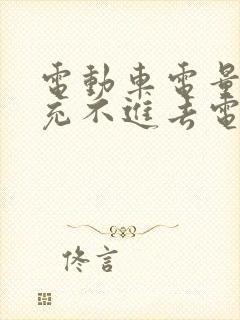 電動車電量
充不進去電
佟言